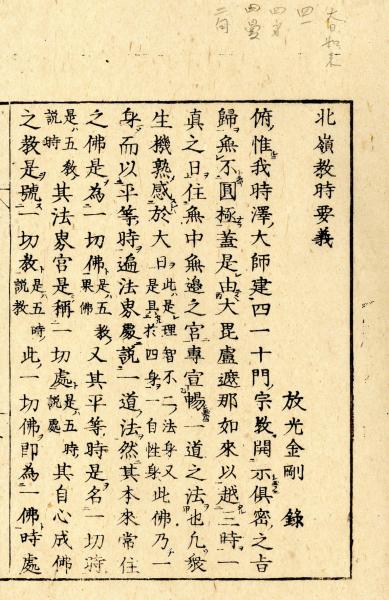 大日如来
四一
四身
四曼
三句
北嶺教時要義
放光金剛 錄
俯惟我時澤大師建四一十門宗教開示俱密之旨
歸無不圓極蓋是由大毘盧遮那如來以越三時一
真之日住無中無邊之宮專宣暢一道之法也九衆
生機熟感於大日此是理智不二法身又是具於四身一自性身此佛乃一
身而以平等時遍法界處說一道法然其本來常住
之佛是為一切佛是五教果佛又其平等時是名一切時
是五教說時其法界宮是稱一切處是五時說處其自心成佛
之教是號一切教是五時說教此一切佛即為一佛時處